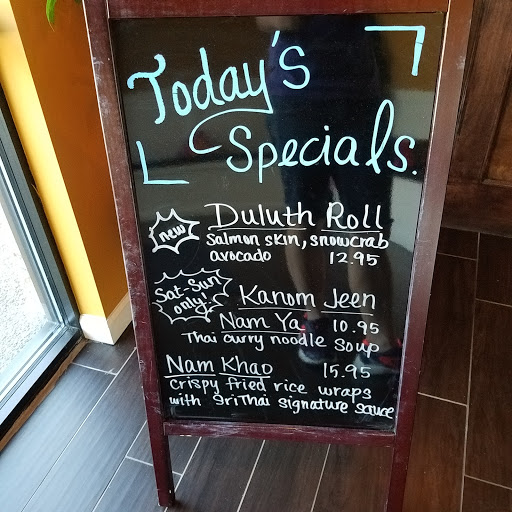 Today's
Specials.
new
Duluth Roll
Salmon skin, snowcrab
avocado 12.95
Sat-Sun
only!
Kanom Jeen
Nam Ya 10.95
Thai curry noodle soup
Nam Khao 15.95
crispy fried rice wraps
with SriThai signature sauce